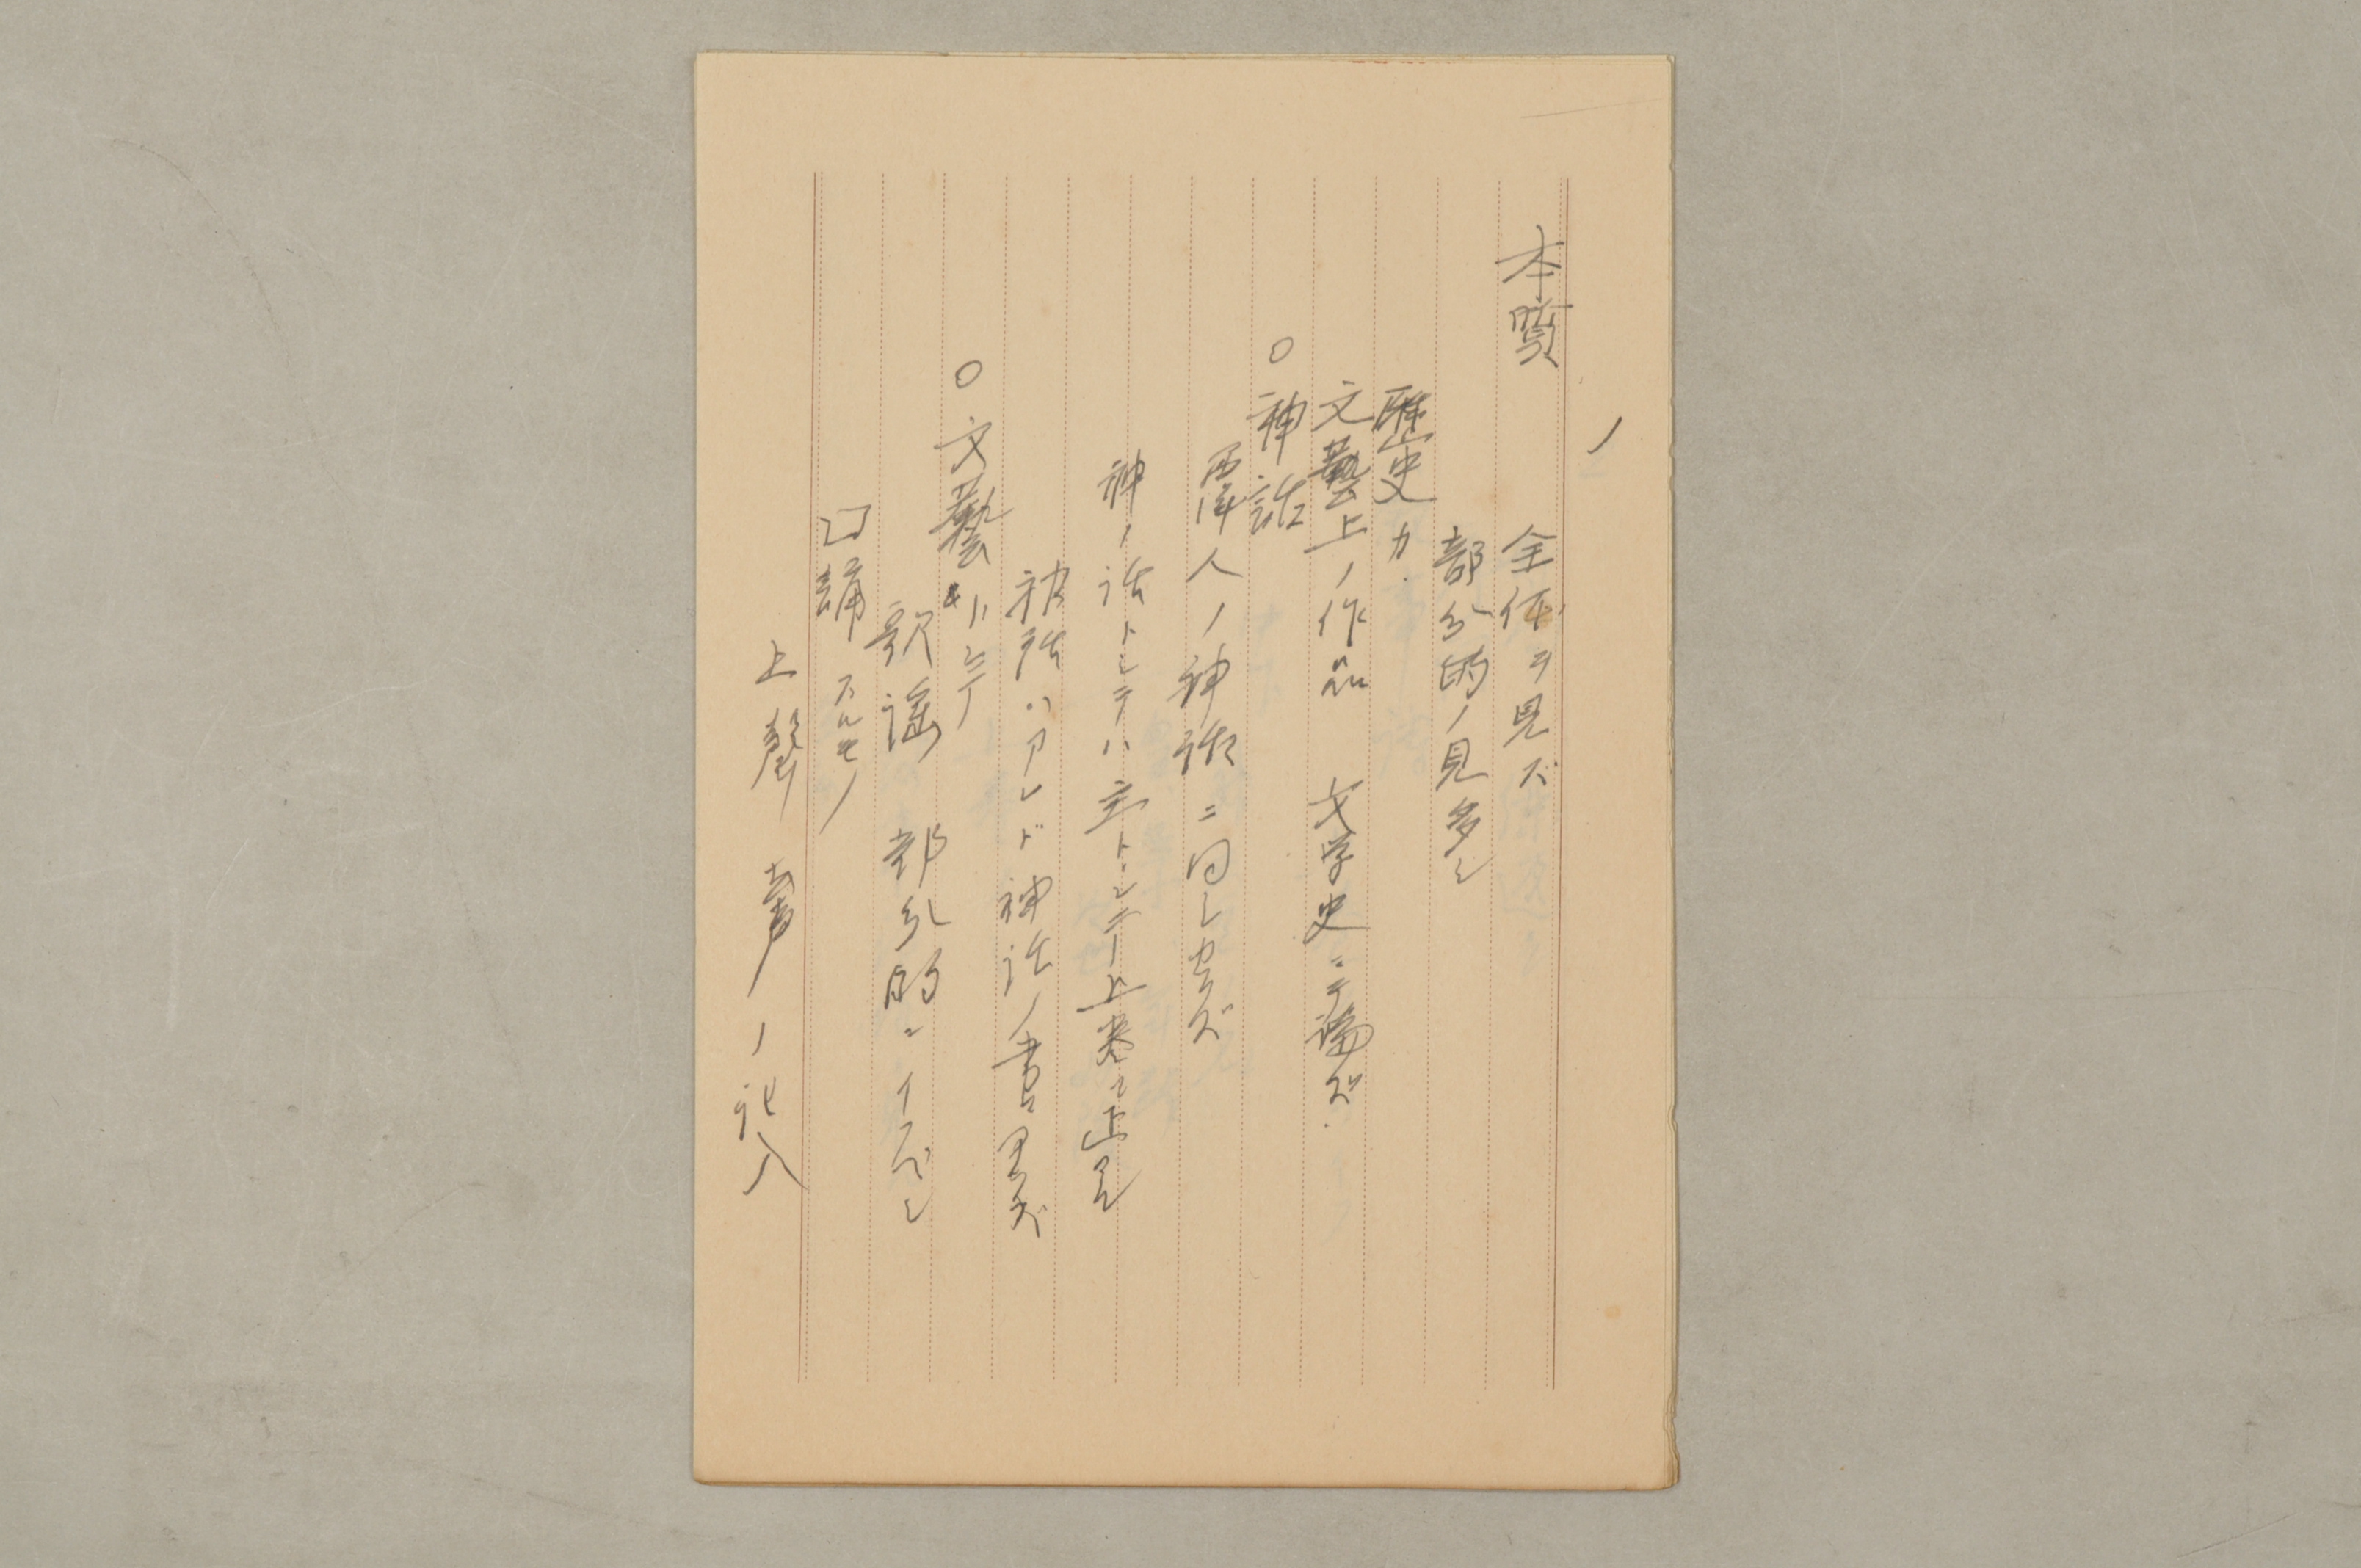 本質
全体ヲ見ズ
部分的ノ見多シ
歴史カ
文藝上ノ作品 文学史ニテ論ズ.
○神話
西洋人ノ神話ニ同シカラズ
神ノ話トシテハ主トシテ上巻ニ止ル
神話ハアレド神話ノ書ナラズ
○文藝
歌謡 部分的ニイフベシ
口誦スルモノ
上聲 声ノ記入